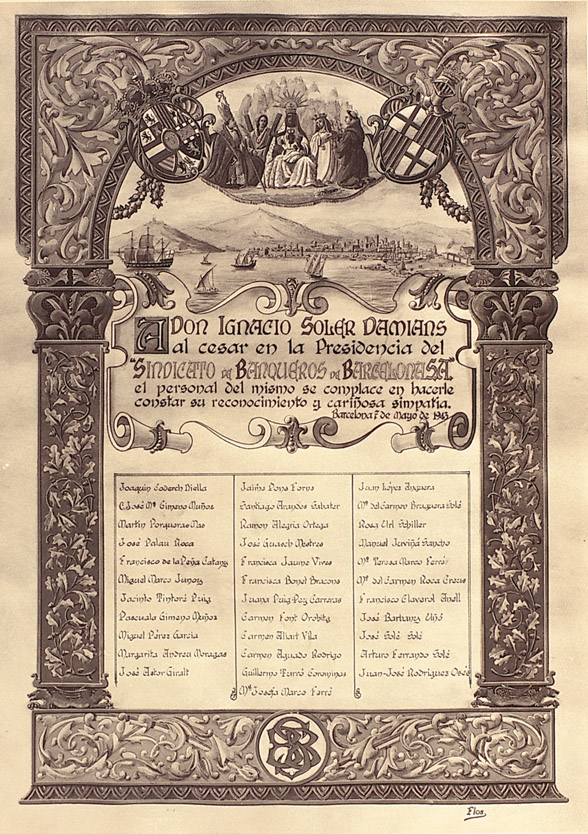 A Don Ignacio Soler Damians
al cesar en la Presidencia del
"Sindicato de Banqueros de Barcelona S.A."
el personal del mismo se complace en hacerle
constar su reconocimiento y cariñosa simpatia.
Barcelona, 1º de Mayo de 1943
Joaquín Coderch Diella
José Mª Gimeno Muñoz
Martín Porqueras Mas
José Palau Roca
Francisco de la Peña
Miguel Marco Junoy
Jacinto Tintoré Puig
Pascuala Gimeno Muñoz
Miguel Pérez García
Margarita Andreu Moragas
José Astor Giralt
Jaime Pons Forns
Santiago Arandes Sabater
Ramon Alegria Ortega
José Guasch Mestres
Francisca Jaume Vives
Francisca Bonet Bracons
Juana Puig-Pey Carreras
Carmen Font Orobitg
Carmen Aliart Vila
Carmen Aguado Rodrigo
Guillermo Turró Corominas
Mª Josefa Marco Ferré
Juan López Anguera
Mª del Carmen Bruguera Solé
Rosa Url Schiller
Manuel Juviñá Sancho
Mª Teresa Marco Ferré
Mª del Carmen Roca Creus
Francisco Claverol Anell
José Barbany
José Solé Solé
Arturo Ferrando Solé
Juan-José Rodrigues
SB
Flos